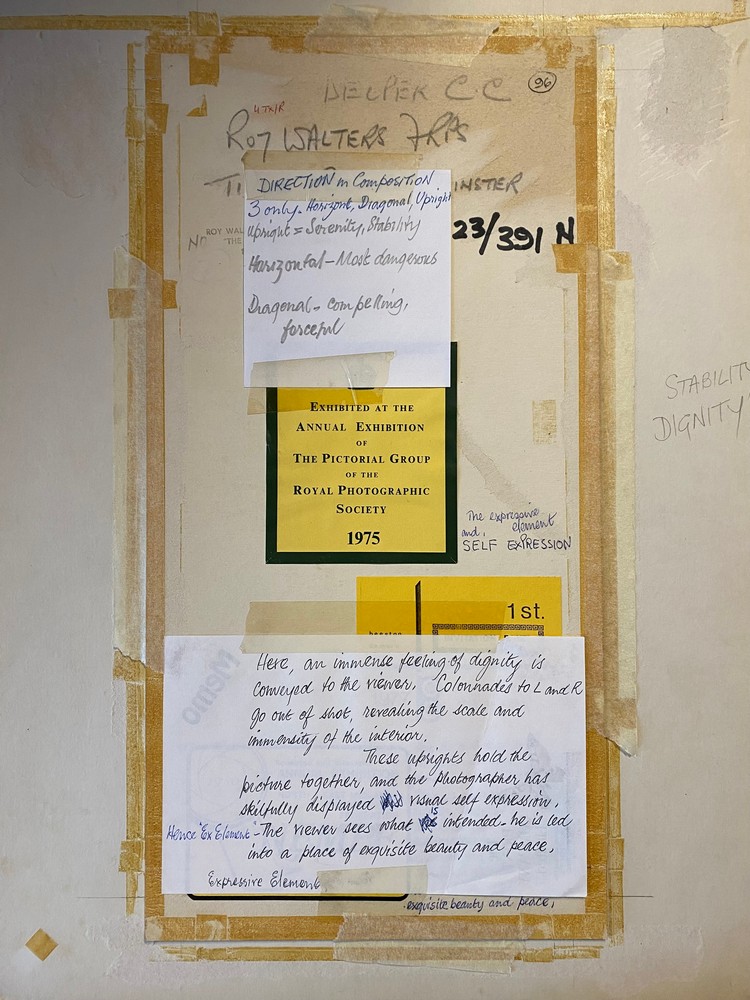 BELPER CC
96
ROY WALTERS FRPS
DIRECTION in COMPOSITION
INSTER
3 only - Horizont, Diagonal, Upright
Upright = Serenity, Stability
ROY WAL
"THE
23/391 N
Horizontal - Most dangerous
Diagonal - compelling,
forceful
STABILITY
DIGNITY"
EXHIBITED AT THE
ANNUAL EXHIBITION
OF
THE PICTORIAL GROUP
OF THE
ROYAL PHOTOGRAPHIC
SOCIETY
1975
The expressive
and, element
SELF EXPRESSION
1st.
Memo
Here, an immense feeling of dignity is
conveyed to the viewer. Colonnades to L and R
go out of shot, revealing the scale and
immensity of the interior.
These uprights hold the
picture together, and the Photographer has
skilfully displayed visual self expression.
Hence "Ex Element" - The viewer sees what is intended - he is led
into a place of exquisite beauty and peace.
Expressive Element
exquisite beauty and peace,